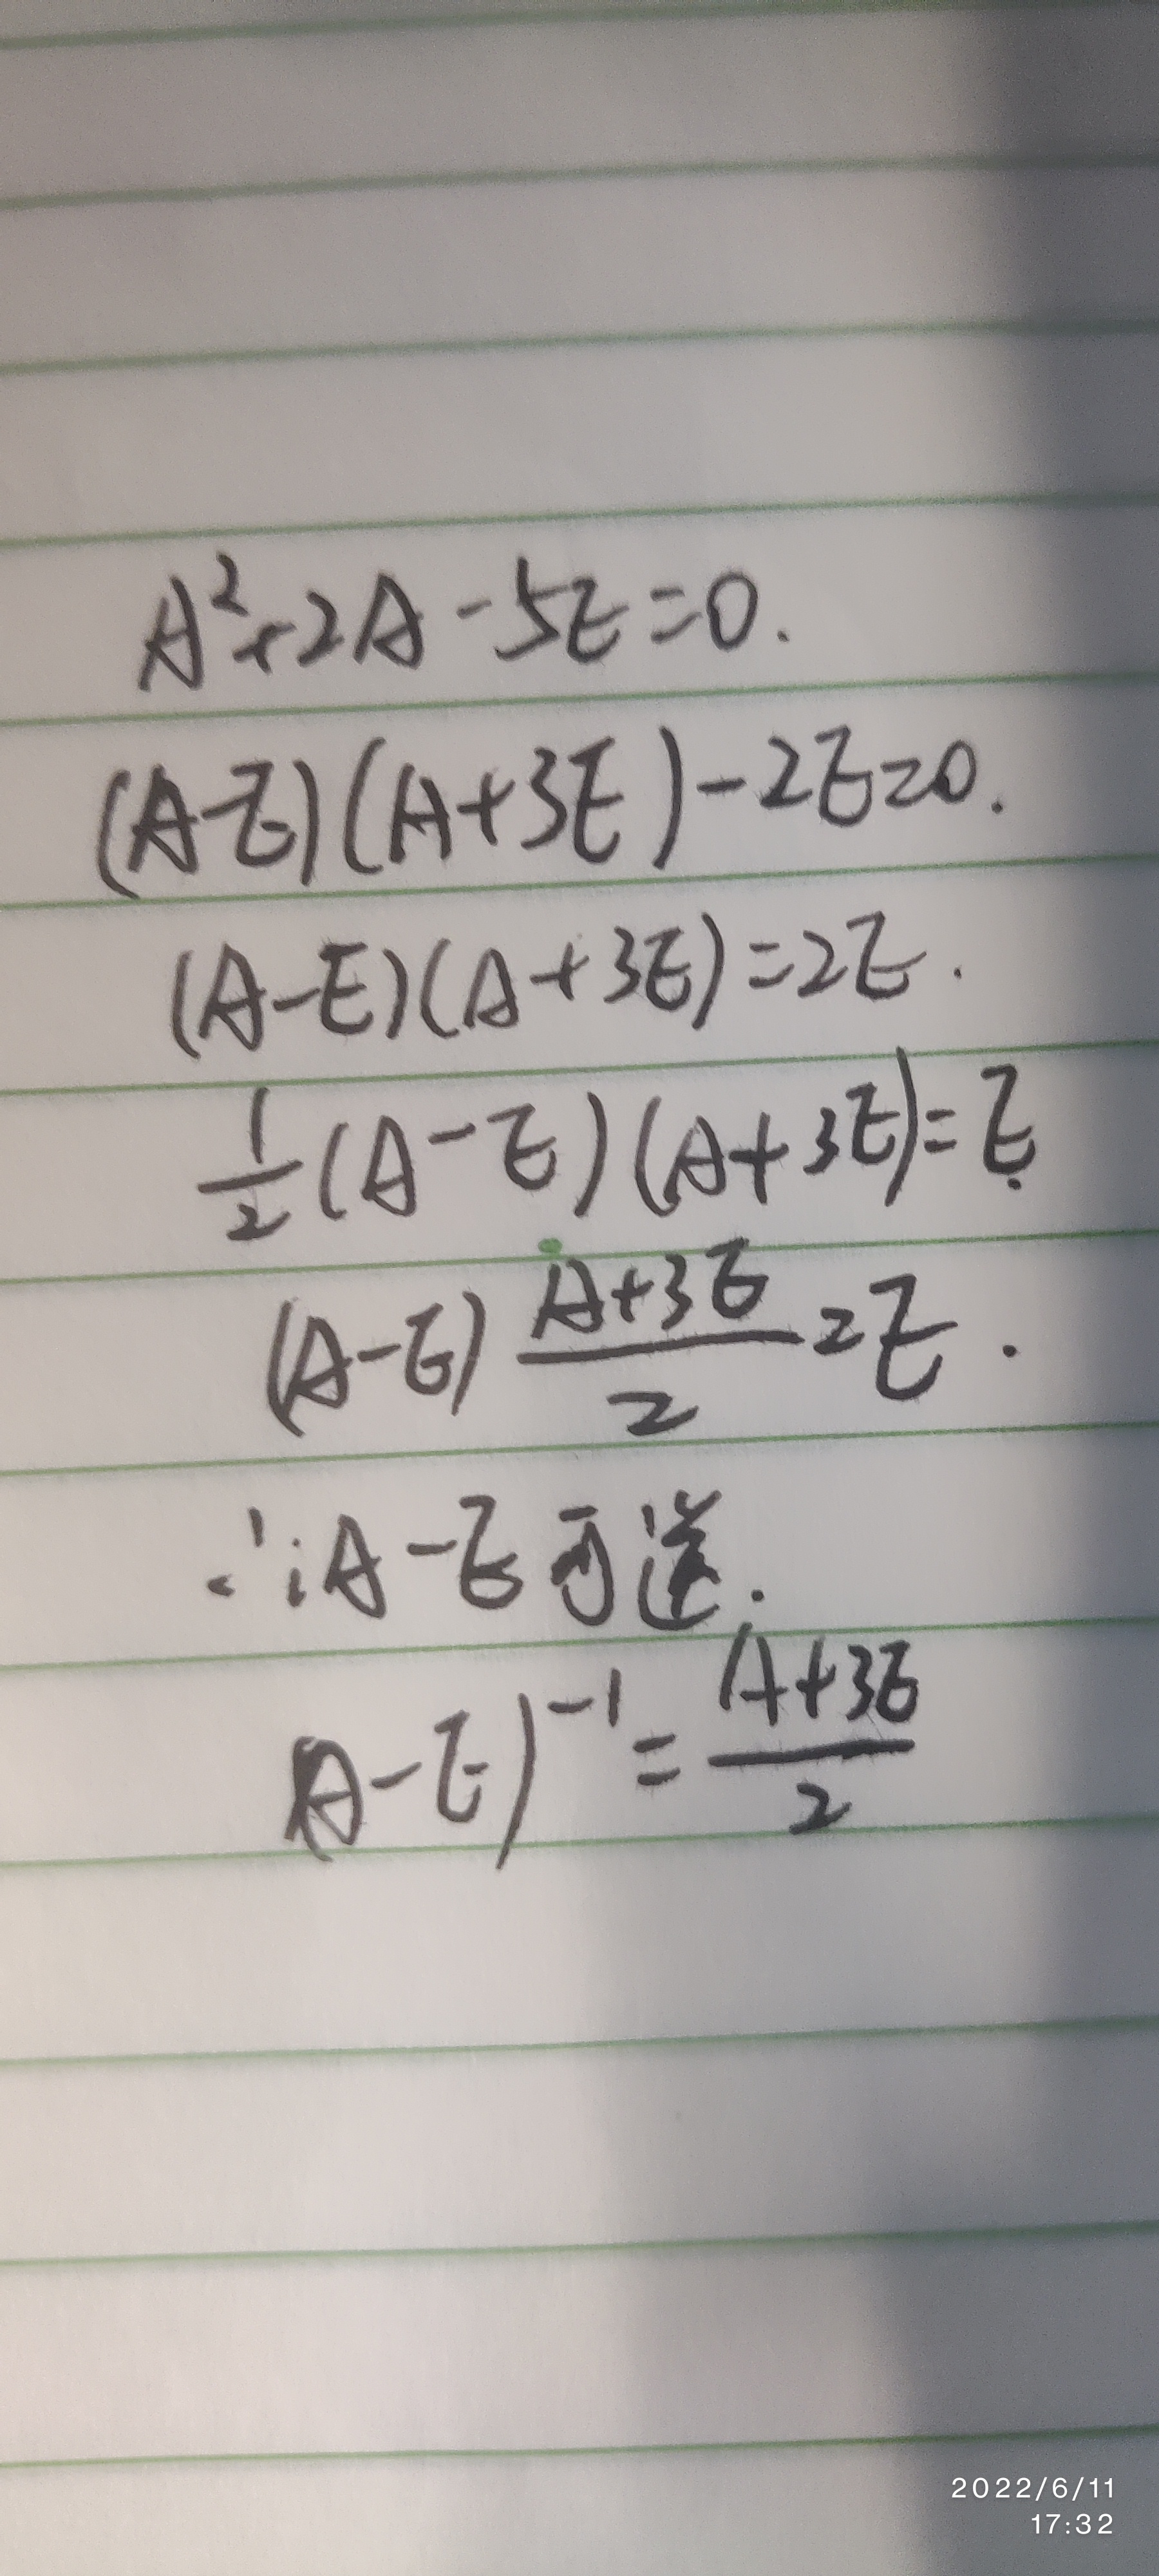 A²+2A-5E=0.
(A-E)(A+3E)-2E=0.
(A-E)(A+3E)=2E.
1/2(A-E)(A+3E)=E.
(A-E) A+3E/2=E.
∴A-E可逆.
A-E)⁻¹=A+3E/2
2022/6/11
17:32